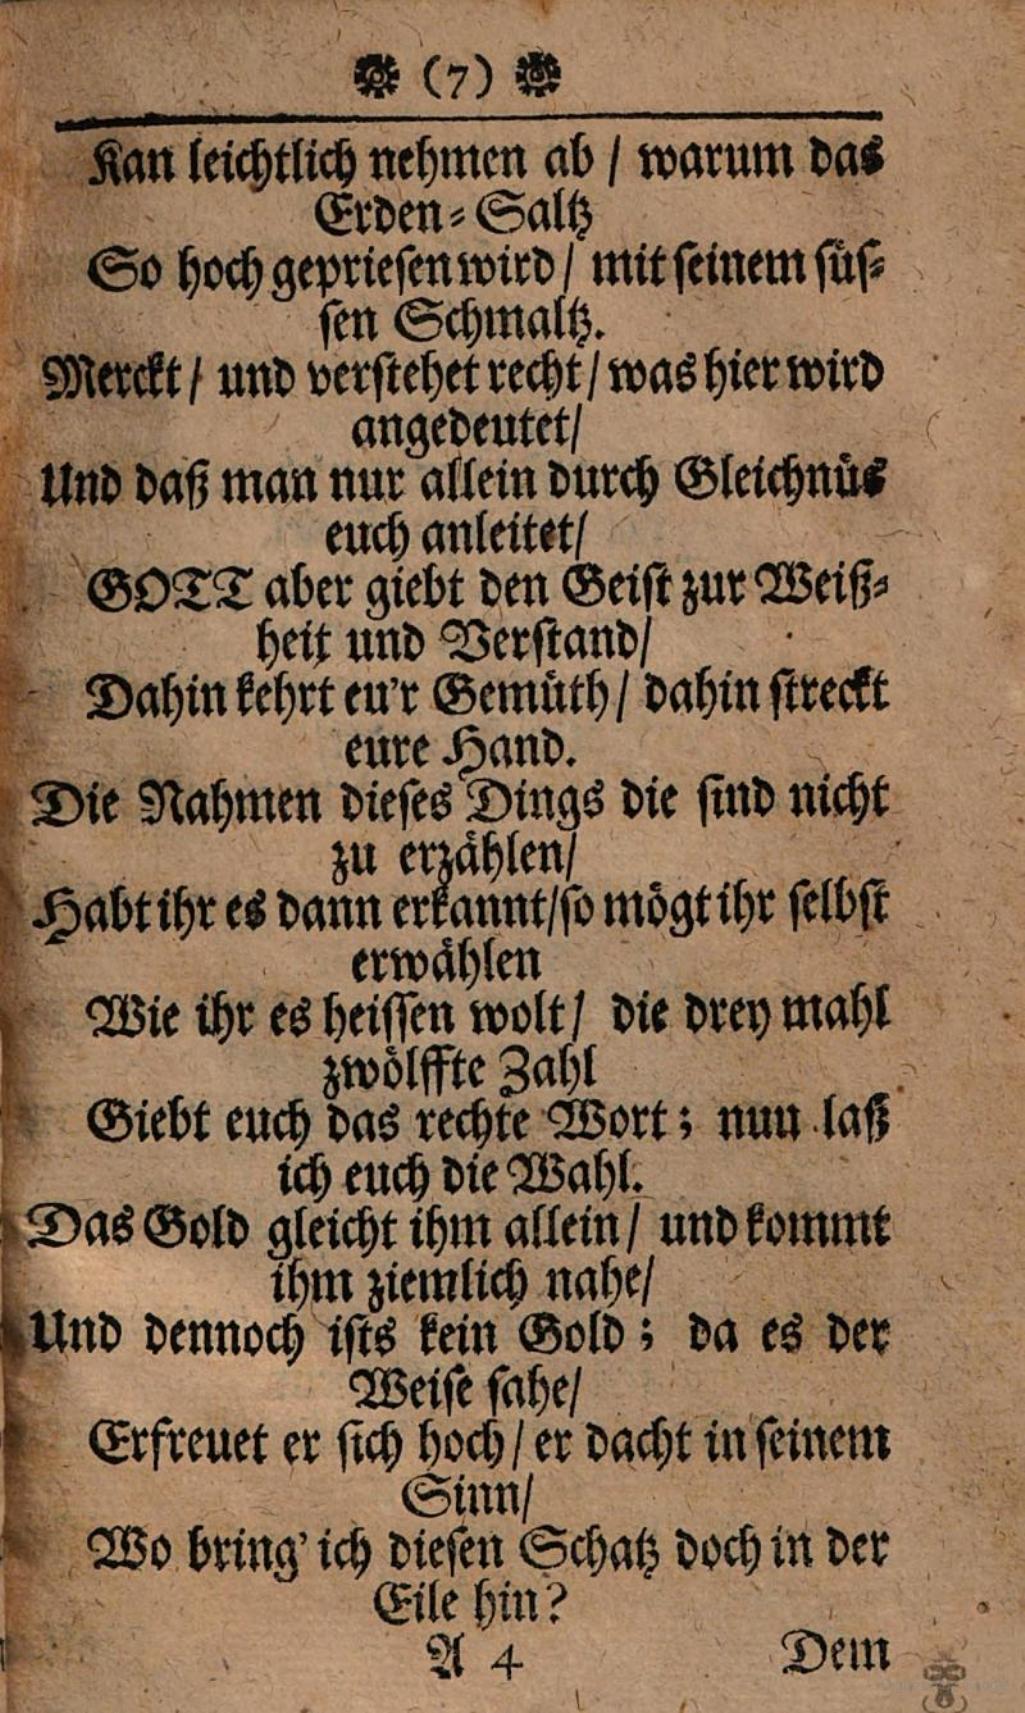 (7)
Kan leichtlich nehmen ab / warum das
Erden-Saltz
So hoch gepriesen wird / mit seinem süs-
sen Schmaltz.
Merckt / und verstehet recht / was hier wird
angedeutet /
Und daß man nur allein durch Gleichnüs
euch anleitet /
GOTT aber giebt den Geist zur Weiß-
heit und Verstand /
Dahin kehrt eu'r Gemüth / dahin streckt
eure Hand.
Die Nahmen dieses Dings die sind nicht
zu erzählen /
Habt ihr es dann erkannt / so mögt ihr selbst
erwählen
Wie ihr es heissen wolt / die drey mahl
zwölffte Zahl
Giebt euch das rechte Wort; nun laß
ich euch die Wahl.
Das Gold gleicht ihm allein / und kommt
ihm ziemlich nahe /
Und dennoch ists kein Gold; da es der
Weise sahe /
Erfreuet er sich hoch / er dacht in seinem
Sinn /
Wo bring' ich diesen Schatz doch in der
Eile hin?
A 4 Dem